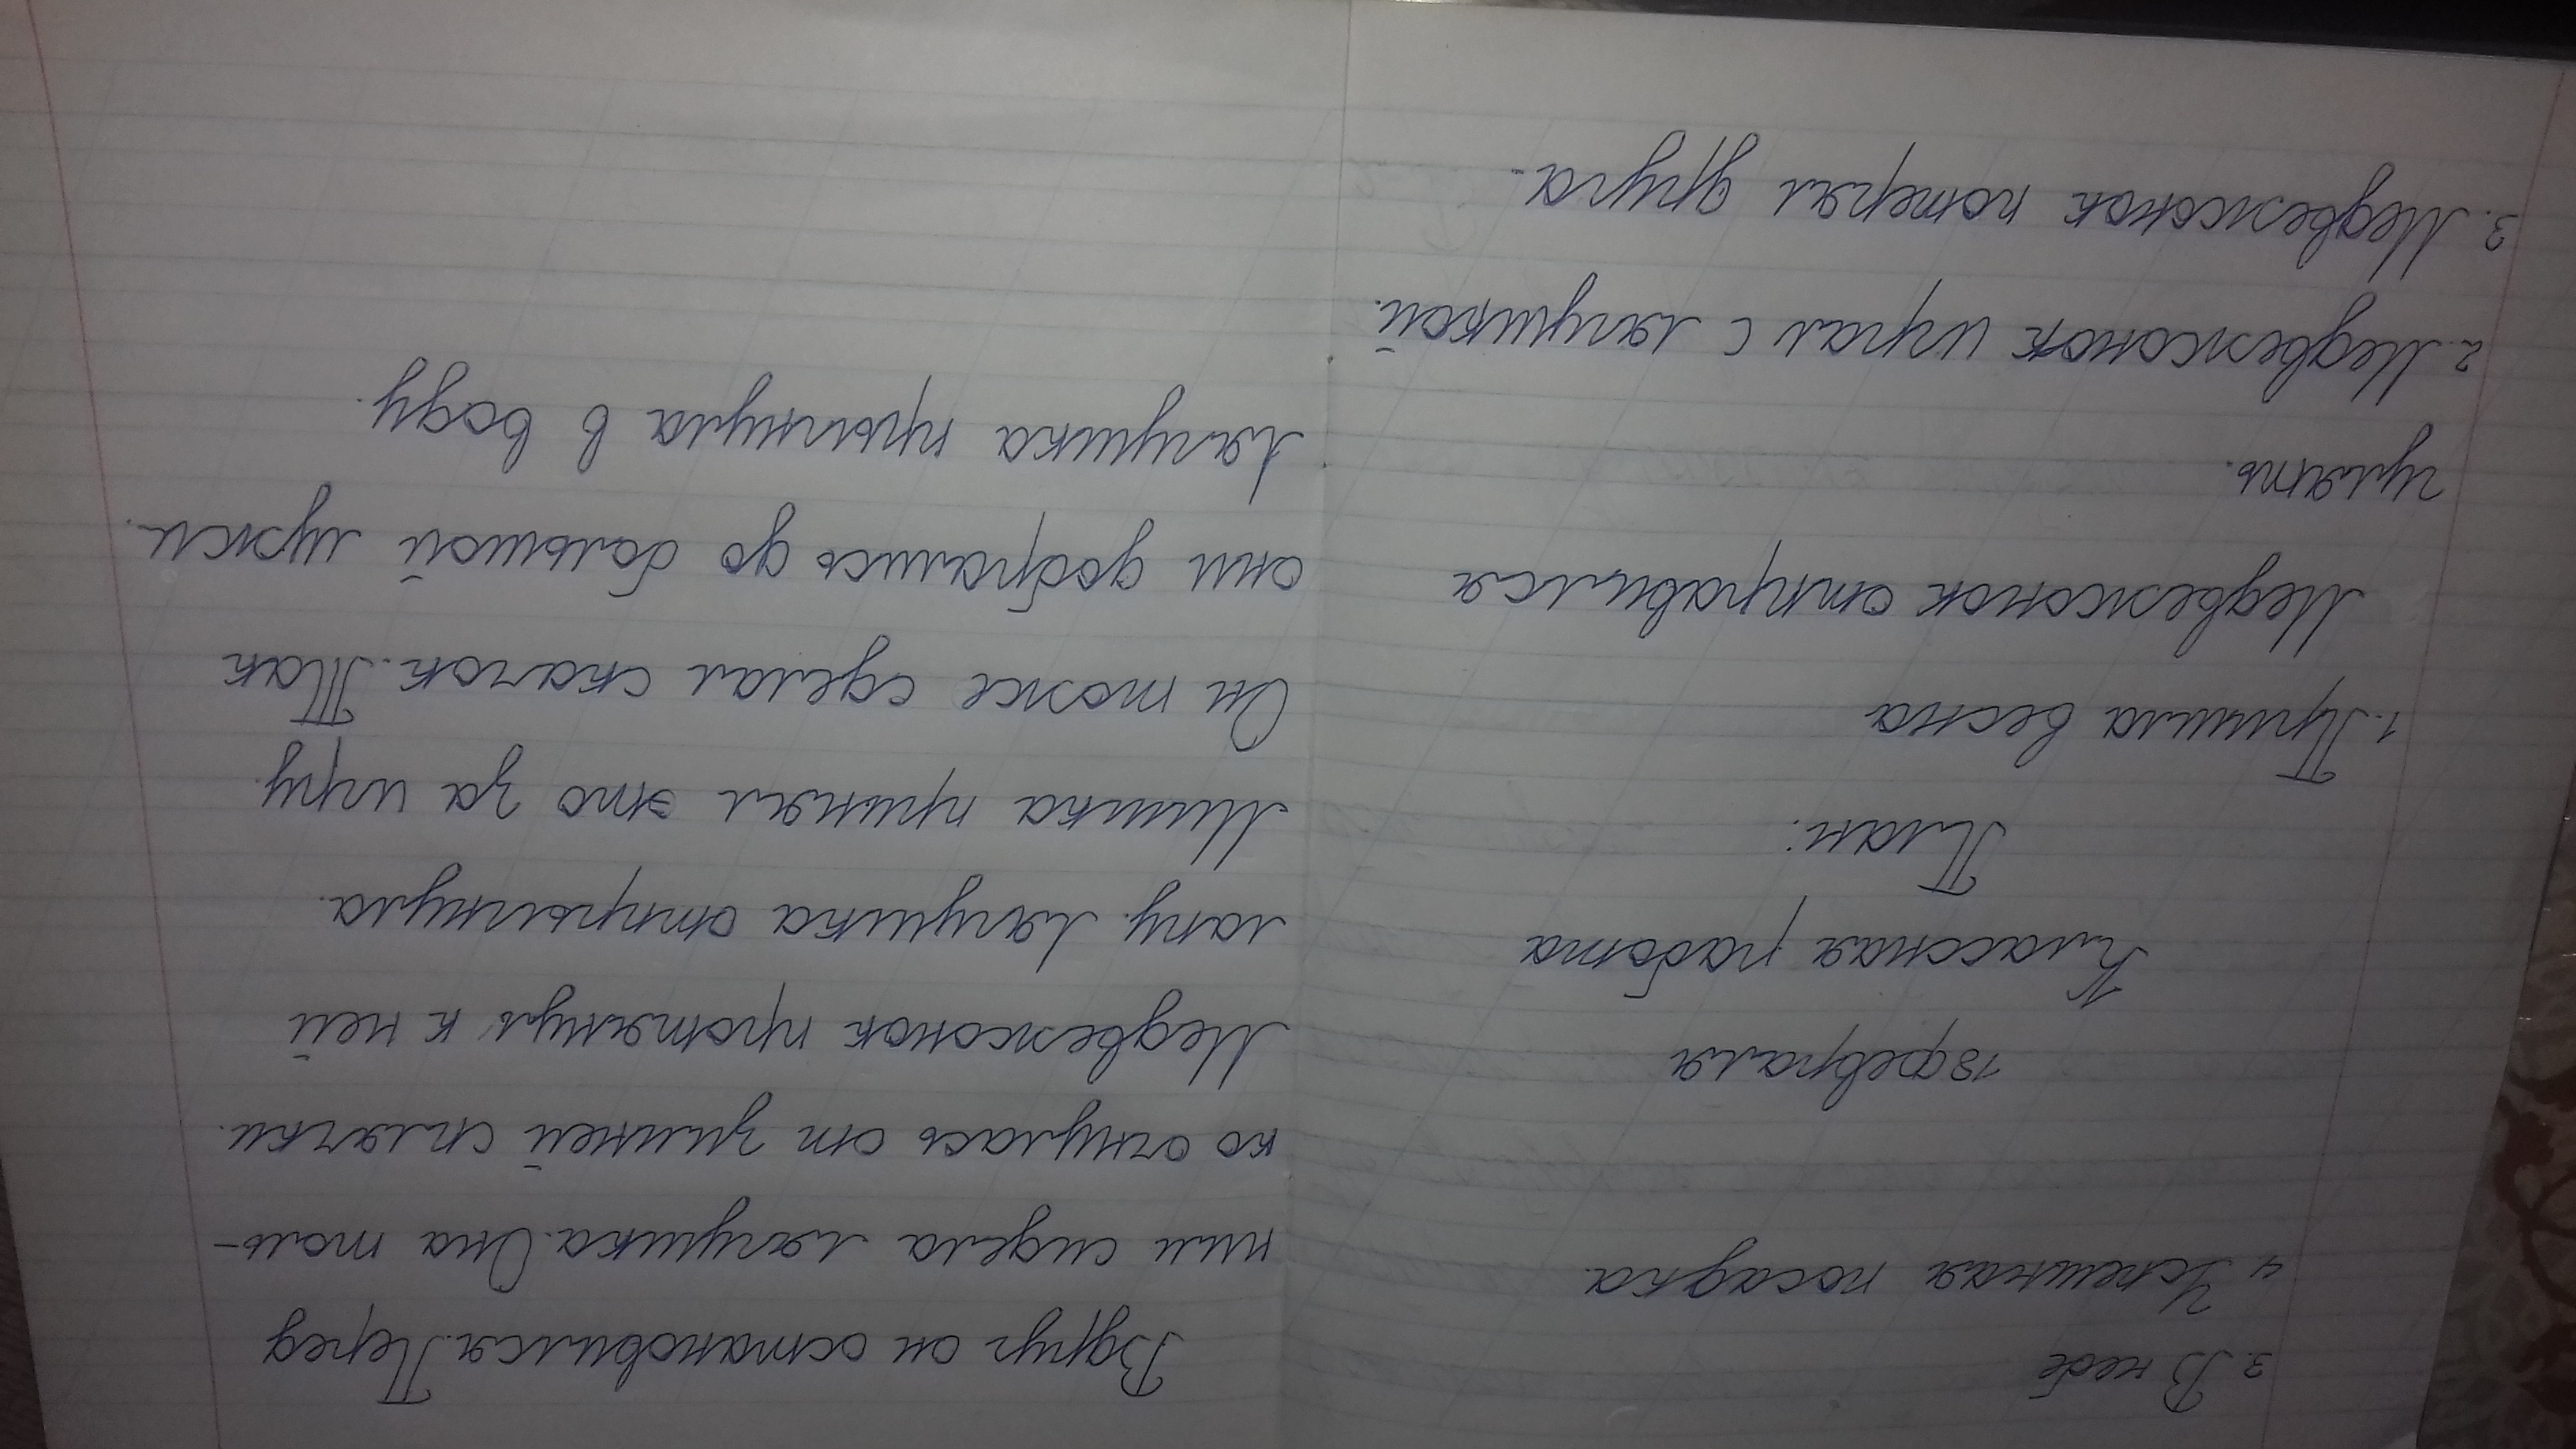 3. В небе
4. Успешная посадка.
18 февраля
Классная работа
План:
1. Пришла весна
Медвежонок отправился
гулять.
2. Медвежонок играл с лягушкой.
3. Медвежонок потерял друга.
Вдруг он остановился. Перед
ним сидела лягушка. Она толь-
ко очнулась от зимней спячки.
Медвежонок протянул к ней
лапу. Лягушка отпрыгнула.
Мишка принял это за игру.
Он тоже сделал скачок. Так
они добрались до большой лужи.
Лягушка прыгнула в воду.